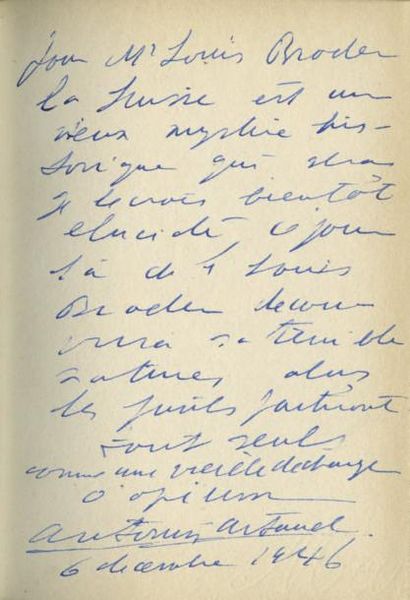 pour Mr Louis Broder
la Suisse est un
vieux mystère his-
torique qui sera
je le crois bientôt
elucidé ce jour
là Louis
Broder décou-
vrira sa terrible
alors
les fusils partiront
tout seuls
comme une vieille décharge
d'opium
Antonin Artaud.
6 décembre 1946